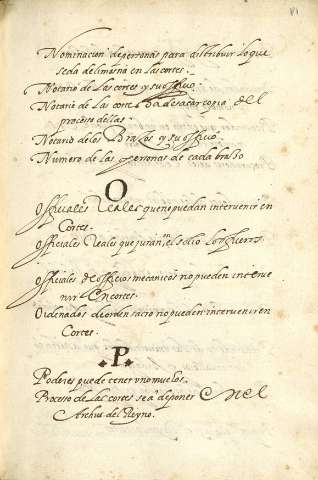 Nominacion de personas para distribuir lo que
se da de limosna en las cortes.
Notario de las cortes y su offiçio
Notario de las cortes ha de sacar copia del
processo dellas
Notario de los Brazos y su officio.
Numero de las personas de cada brasso
O
Officiales Reales que no puedan intervenir en
Cortes.
Officiales Reales que juran en el solio los fueros.
Officiales de officios mecanicos no pueden interue
nir en cortes.
Ordenados de orden sacro no pueden interuenir en
Cortes.
P.
Poderes puede tener uno muchos.
Processo de las cortes se a de poner en el
Archiu del Reyno.